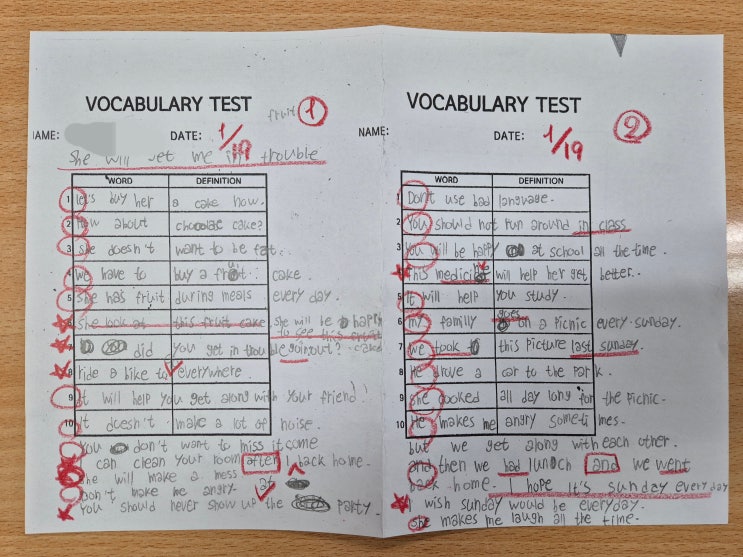 VOCABULARY TEST
fruit 1
NAME: DATE: 1/19
She will get me in trouble
WORD DEFINITION
1 let's buy her a cake now.
2 How about chocolate cake?
3 she doesn't want to be fat.
4 we have to buy a fruit cake.
5 She has fruit during meals every day.
6 She look at this fruit cake she will be happy
to see this fruit cake
7 did you get in trouble going out?
8 ride a bike to everywhere.
9 It will help you get along with your friend!
10 It doesn't make a lot of noise.
You don't want to miss it come
can clean your room after I back home.
she will make a mess at
Don't make me angry.
You should never show up the party.
VOCABULARY TEST
2
NAME: DATE: 1/19
WORD DEFINITION
1 Don't use bad language.
2 You should not run around in class
3 you will be happy at school all the time.
4 This medicine will help her get better.
5 It will help you study.
6 my familly goes on a picnic every sunday.
7 we took this picture last sunday.
8 He drove a car to the park.
9 she cooked all day long for the picnic.
10 He makes me angry sometimes.
but we get along with each other.
and then we had lunch and we went
back home. I hope it's sunday every day
I wish sunday would be everyday.
she makes me laugh all the time.